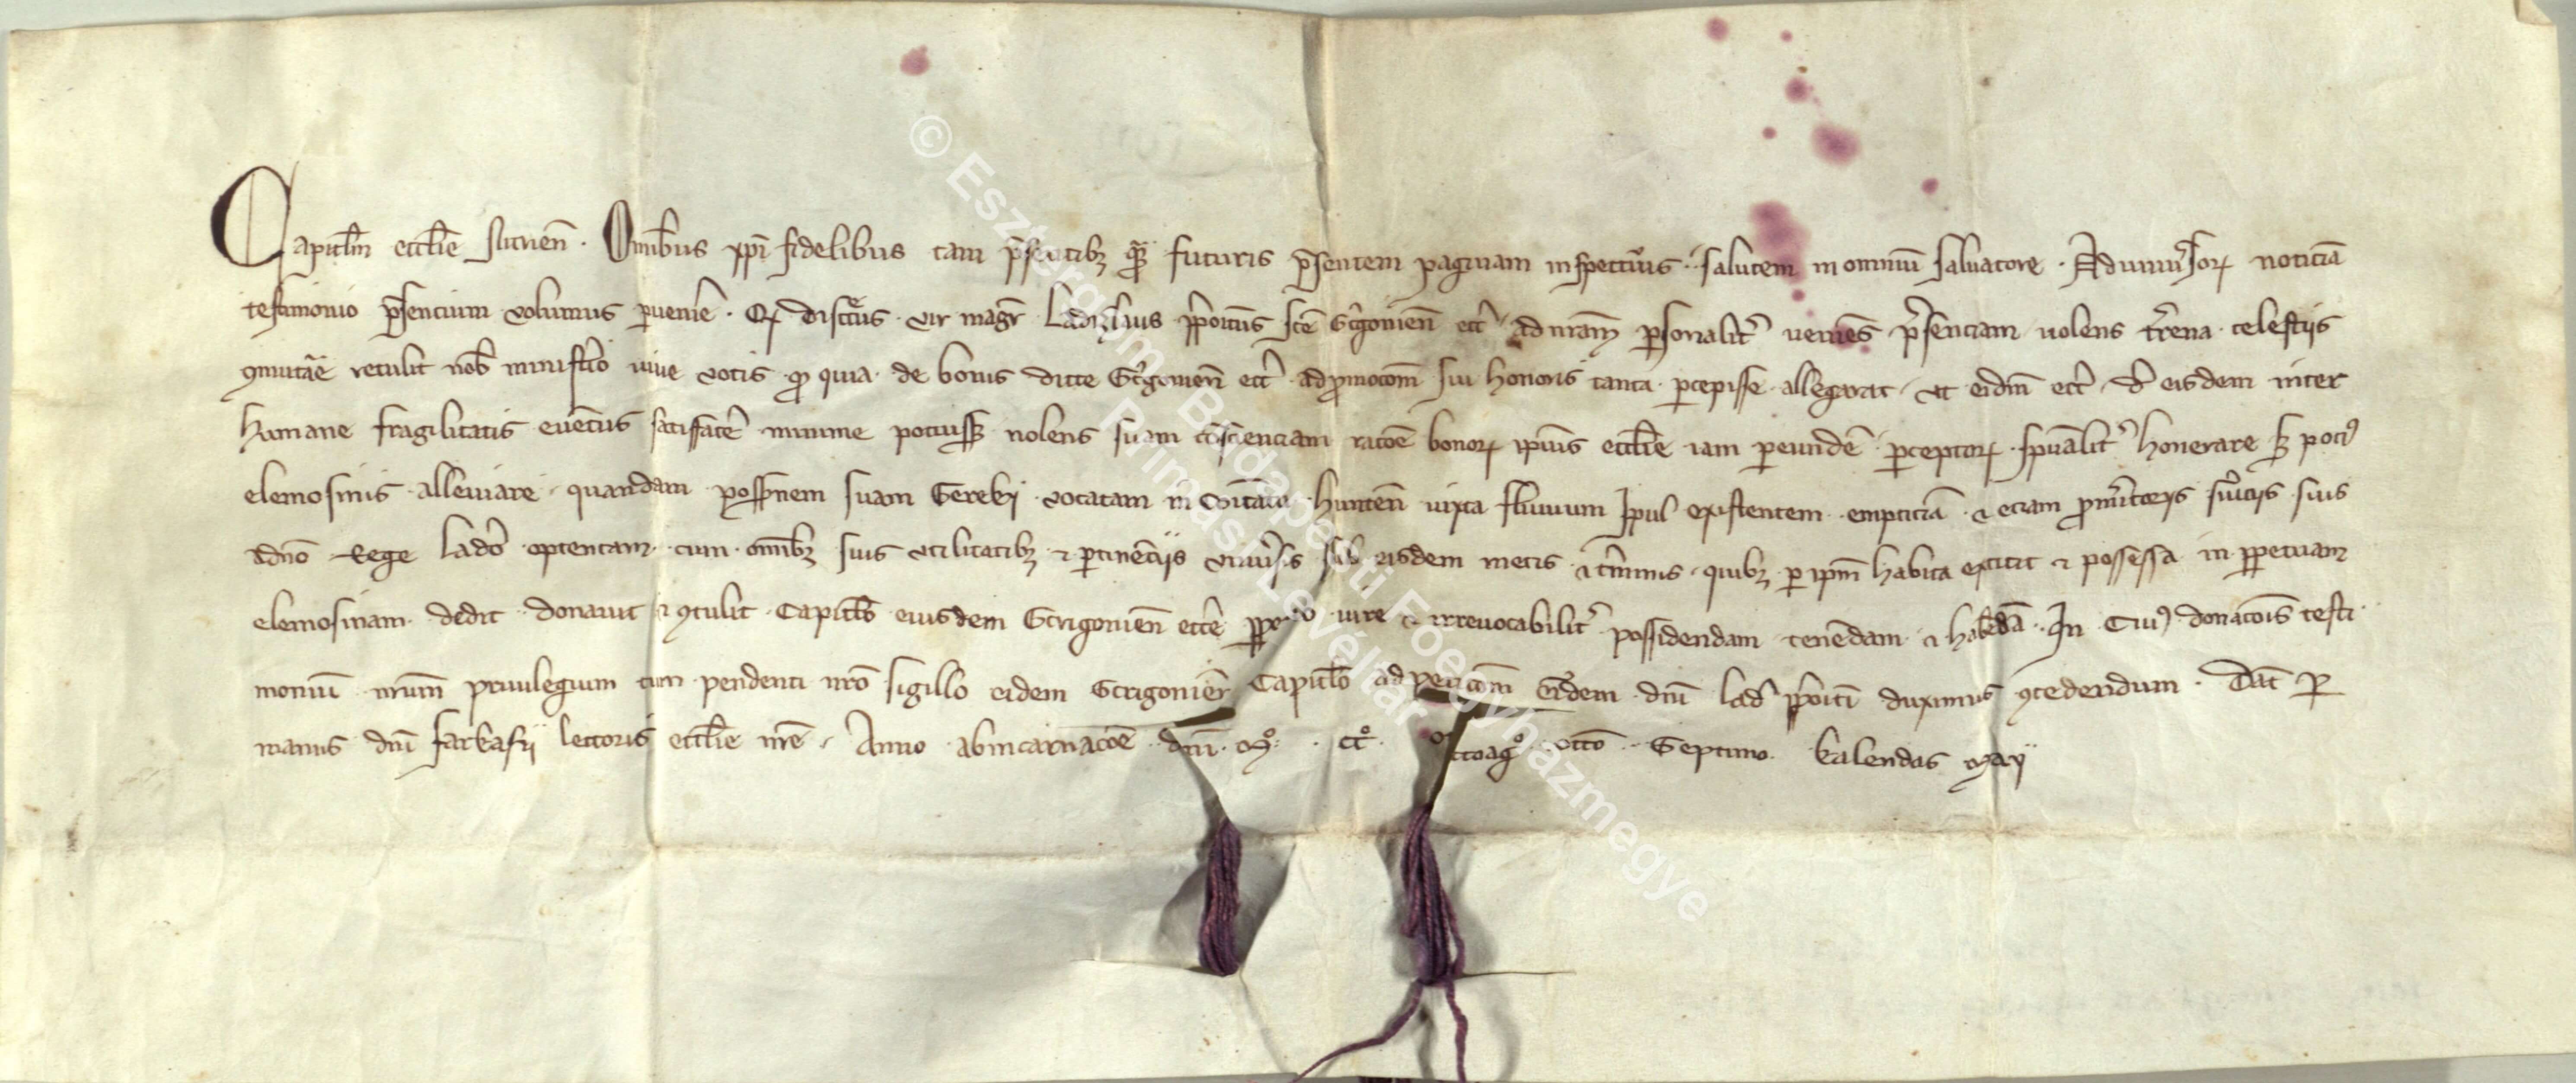 Capitlm ecclie Nitrien . Omibus xpi fidelibus tam psentibz qm futuris psentem paginam inspecturis . salutem in omnium saluatore . Ad uniusor noticia
testimonio psencium volumus puenire . Q discretus vir magr Ladizlaus ppositus sce Strigonien ecce ad nram psonalit ueniens psenciam uolens trena celestiis
9mutare retulit nob ministio uiue vocis q quia de bonis dicte Strigonien ecce ad pmocom sui honoris tanta pcepisse allegarat ut eidm ecce de eisdem inter
humane fragilitatis euentus satisfacere minime potuisset nolens suam conscienciam racoe bonor ipius ecclie iam p eundem pceptor spualit honerare s poci9
elemosinis alleuiare quandam possnem suam Gereki vocatam in Comitatu Hunten iuxta fluuium Ipul existentem empticiam & eciam suiciis suis
a dno Rege Lado optentam cum omibz suis vtilitatibz & ptinenciis uniusis sub eisdem metis & tminis quibz p ipm habita extitit & possessa in ppetuam
elemosinam dedit donauit & 9tulit Capitlo eiusdem Strigonien ecce iure & irreuocabilit possidendam tenendam & habenda . In Cui9 donacois testi
monium nrum priuilegium cum pendenti nro sigillo eidem Strigonien Capitlo ad peticom eiusdem dni Lad ppositi duximus 9cedendum . Dat p
manus dni farkasii lectoris ecclie nre . Anno ab incarnacoe dni . Mo . CCo . octoago . octo . Septimo kalendas Maij
© Esztergom-Budapesti Főegyházmegye
Prímási Levéltár